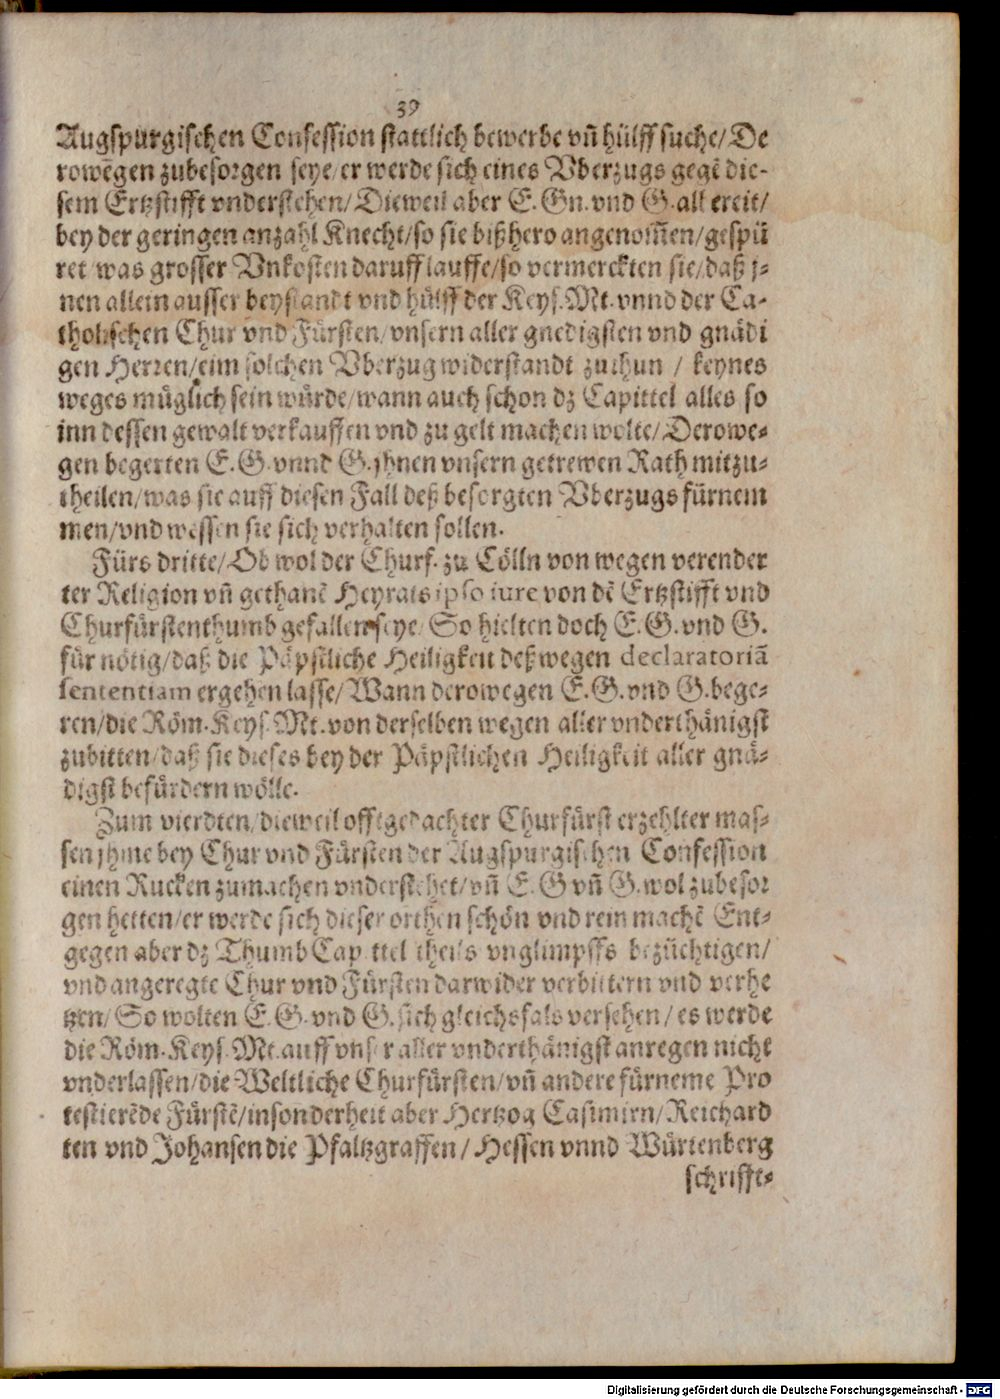 39
Augspurgischen Confession stattlich bewerbe vñ hülff suche/De
rowegen zubesorgen seye/er werde sich eines Vberzugs gegẽ die-
sem Ertzstifft vnderstehen/Dieweil aber E. Gn. vnd G. all ereit/
bey der geringen anzahl Knecht/so sie bißhero angenom̃en/gespü
ret was grosser Vnkosten daruff lauffe/so vermerckten sie/daß j-
nen allein ausser beystandt vnd hülff der Keys. Mt. vnnd der Ca-
tholischen Chur vnd Fürsten/vnsern aller gnedigsten vnd gnädi
gen Herren/eim solchen Vberzug widerstandt zuthun / keynes
weges müglich sein würde/wann auch schon dz Capittel alles so
inn dessen gewalt verkauffen vnd zu gelt machen wolte/Derowe-
gen begerten E. G. vnnd G. jhnen vnsern getrewen Rath mitzu-
theilen/was sie auff diesen Fall deß besorgten Vberzugs fürnem
men/vnd wessen sie sich verhalten sollen.
Fürs dritte/Ob wol der Churf. zu Cölln von wegen verender
ter Religion vñ gethanẽ Heyrats ipso iure von dẽ Ertzstifft vnd
Churfürstenthumb gefallen seye/So hielten doch E. G. vnd G.
für nötig/daß die Päpstliche Heiligkeit deßwegen declaratoriã
sententiam ergehen lasse/Wann derowegen E. G. vnd G. bege-
ren/die Röm. Keys. Mt. von derselben wegen aller vnderthänigst
zubitten/daß sie dieses bey der Päpstlichen Heiligkeit aller gnä-
digst befürdern wölle.
Zum vierdten/dieweil offtgedachter Churfürst erzehlter mas-
sen jhme bey Chur vnd Fürsten der Augspurgischen Confession
einen Rucken zumachen vnderstehet/vñ E. G vñ G. wol zubesor
gen hetten/er werde sich dieser orthen schön vnd rein machẽ Ent-
gegen aber dz Thumb Capittel theils vnglimpffs bezüchtigen/
vnd angeregte Chur vnd Fürsten darwider verbittern vnd verhe
tzen/So wolten E. G. vnd G. sich gleichsfals versehen/es werde
die Röm. Keys. Mt. auff vnser aller vnderthänigst anregen nicht
vnderlassen/die Weltliche Churfürsten/vñ andere fürneme Pro
testierẽde Fürstẽ/insonderheit aber Hertzog Casimirn/Reichard
ten vnd Johansen die Pfaltzgraffen/Hessen vnnd Würtenberg
schrifft-
Digitalisierung gefördert durch die Deutsche Forschungsgemeinschaft - DFG